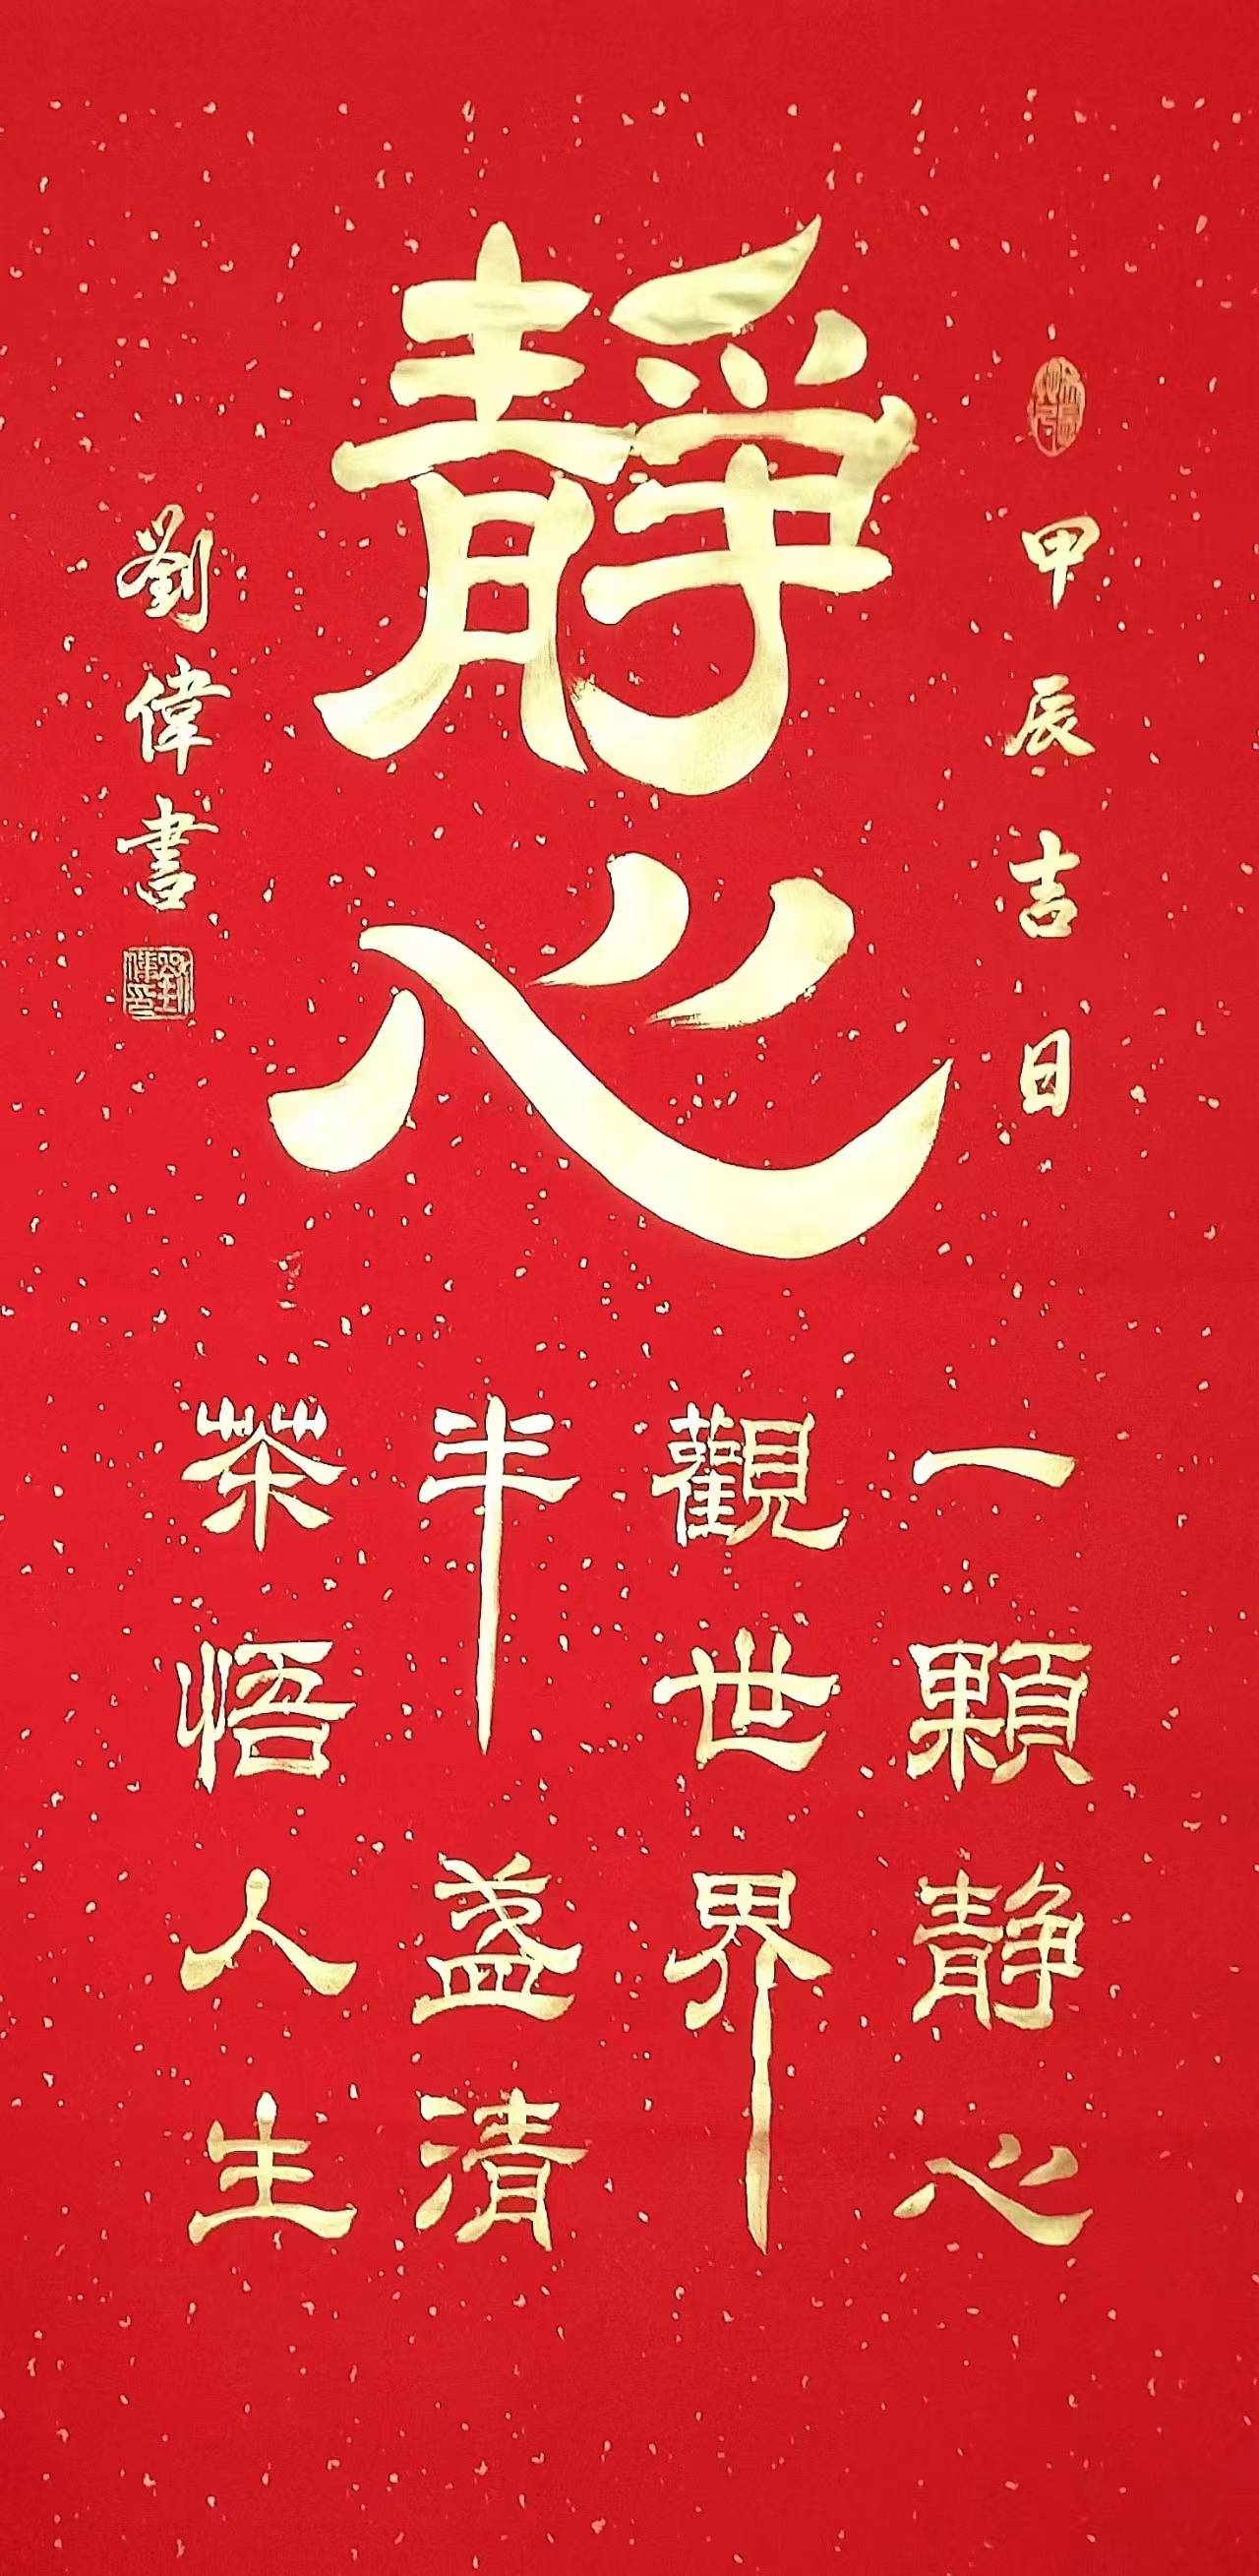 靜心
甲辰吉日
一顆静心
觀世界
半盞清
茶悟人生
劉偉書
劉偉印